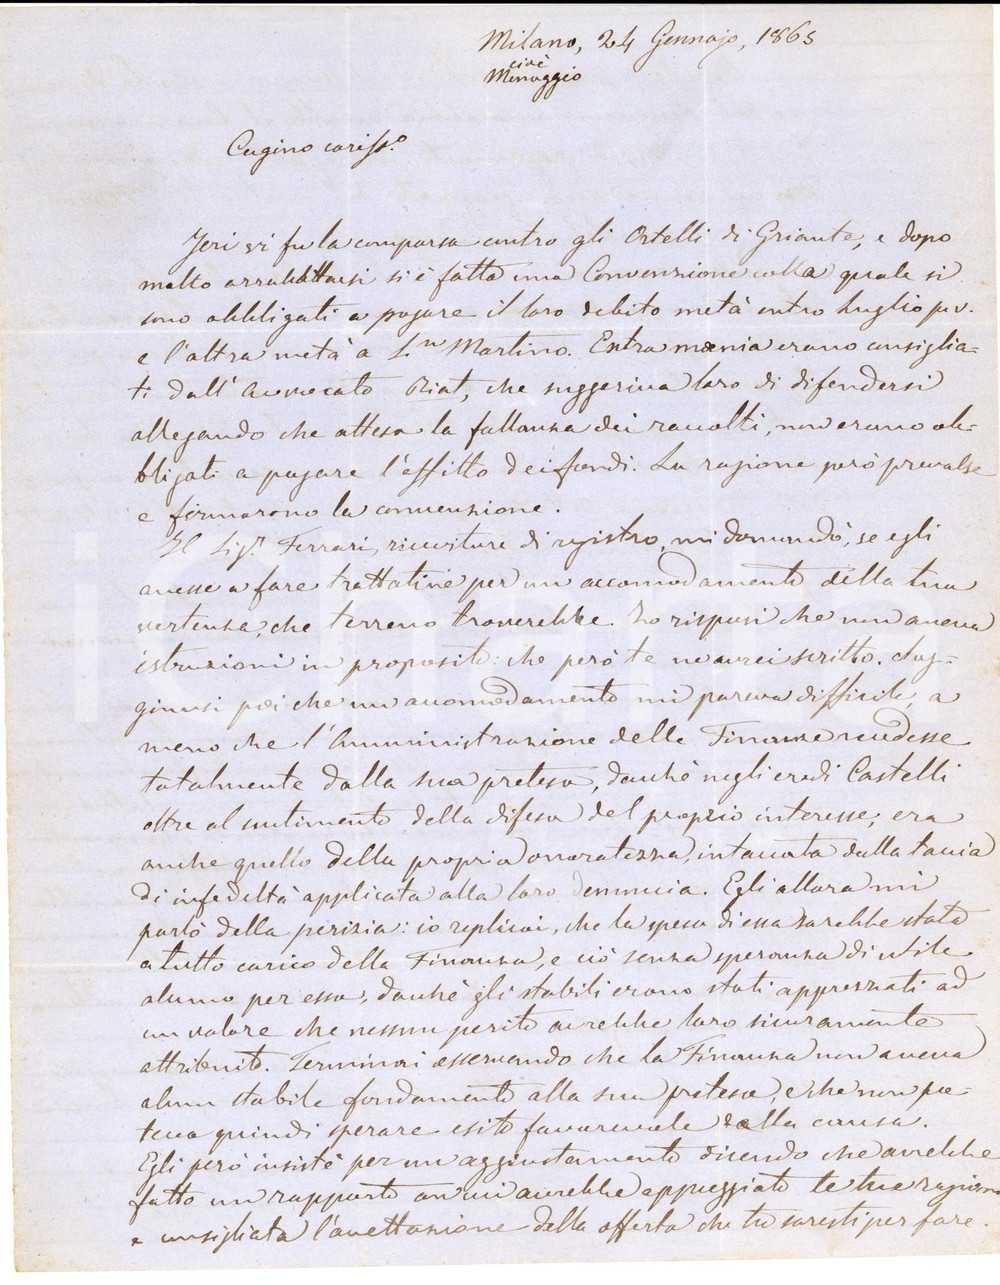 Milano, 24 Gennajo, 1865
cioè
Menaggio
Cugino cariss.º
Jeri vi fu la comparsa contro gli Ortelli di Griante, e dopo
molto arrabattarsi si è fatta una Convenzione colla quale si
sono obbligati a pagare il loro debito metà entro Luglio p.v.
e l'altra metà a S.n Martino. Entrambi erano consiglia=
ti dall'Avvocato Riat, che suggeriva loro di difendersi
allegando che attesa la fallanza dei raccolti, non erano ob=
bligati a pagare l'affitto dei fondi. La ragione però prevalse
e firmarono la convenzione.
Il Sig.r Ferrari, ricevitore di registro, mi domandò, se egli
avesse a fare trattative per un accomodamento della tua
vertenza, che terreno troverebbe. Io risposi che non aveva
istruzioni in proposito: che però te ne avrei scritto. Sog=
giunsi poi che un accomodamento mi pareva difficile, a
meno che l'Amministrazione delle Finanze recedesse
totalmente dalla sua pretesa, dacchè negli eredi Castelli
oltre al sentimento della difesa del proprio interesse, era
anche quello della propria onoratezza, intaccata dalla taccia
di infedeltà applicata alla loro denuncia. Egli allora mi
parlò della perizia: io replicai, che la spesa di essa sarebbe stata
a tutto carico della Finanza, e ciò senza speranza di utile
alcuno per essa, dacchè gli stabili erano stati apprezzati ad
un valore che nessun perito avrebbe loro sicuramente
attribuito. Terminai osservando che la Finanza non aveva
alcun stabile fondamento alla sua pretesa, e che non po=
teva quindi sperare esito favorevole dalla causa.
Egli però insistè per un aggiustamento dicendo che avrebbe
fatto un rapporto in cui avrebbe appoggiato le tue ragioni
e consigliata l'accettazione della offerta che tu saresti per fare.
iCharta